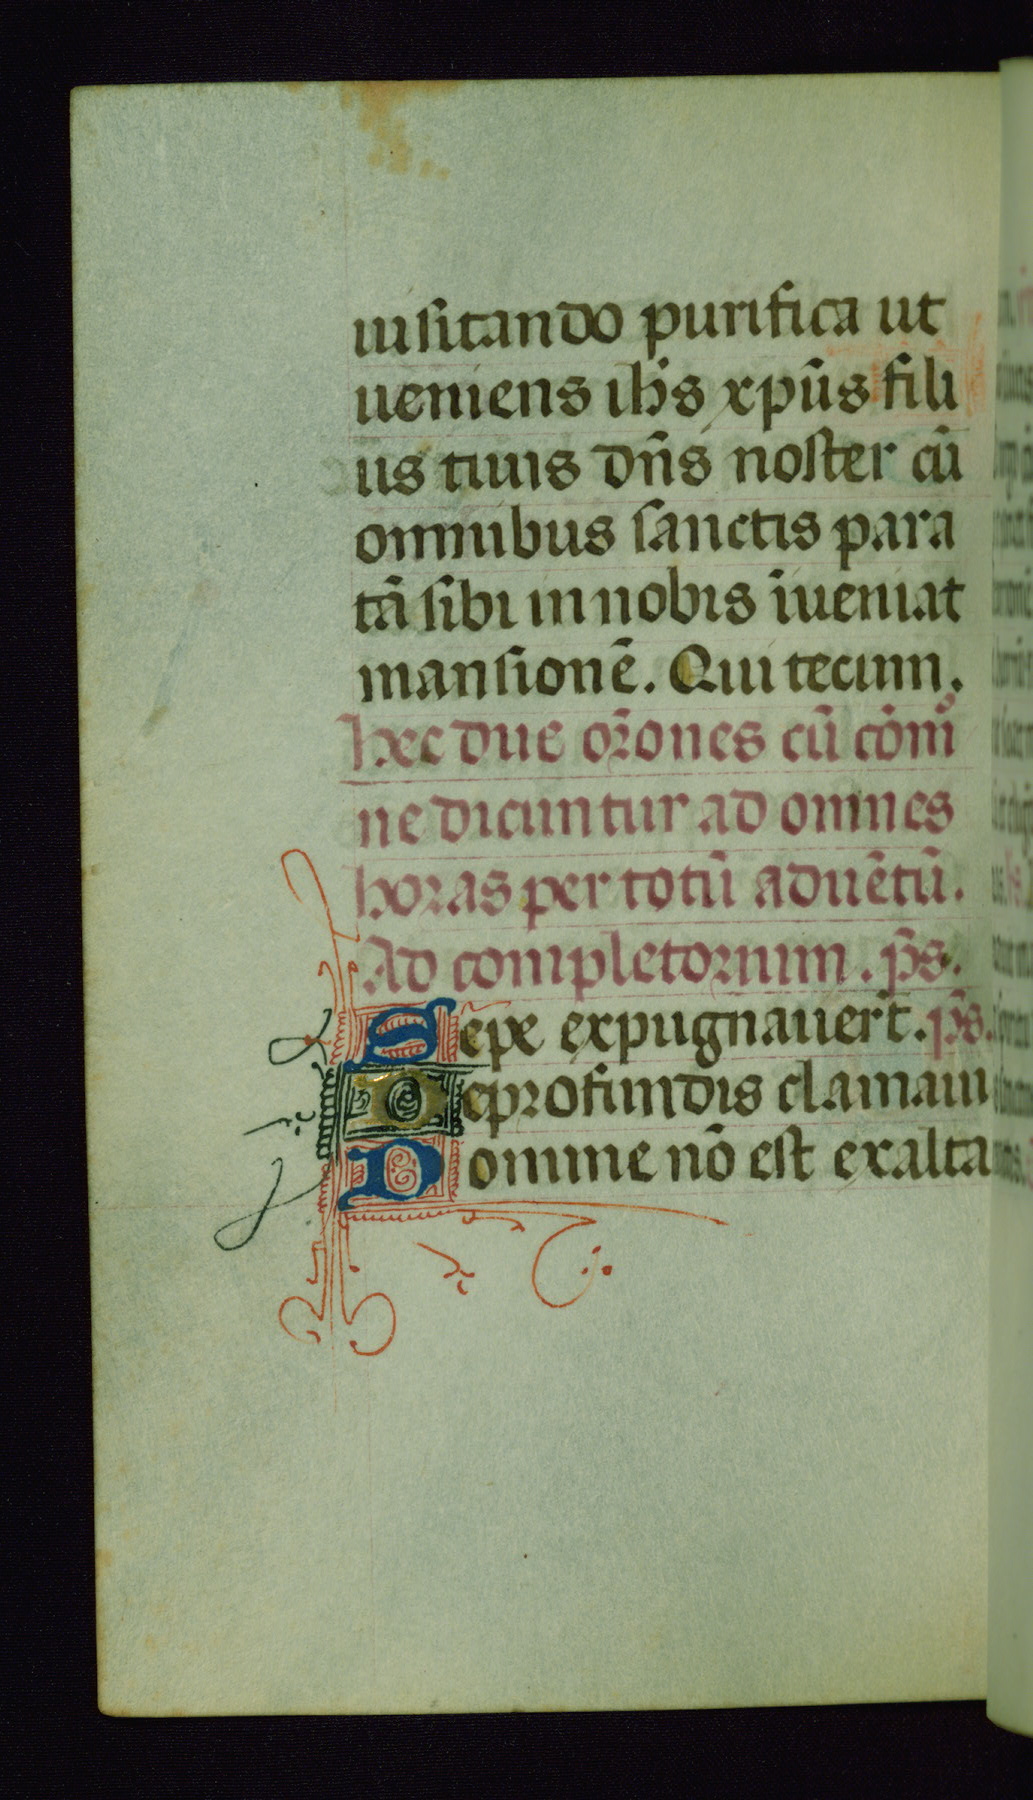 uisitando purifica ut
ueniens ih̄s xpūs fili
us tuus dn̄s noster cū
omnibus sanctis para
tā sibi in nobis īueniat
mansionē. Qui tecum.
hec due or̄ones cū cōm̄o
ne dicuntur ad omnes
horas per totū aduētū.
Ad completorium. ps̄.
Sepe expugnauer̄t. ps̄.
De profundis clamaui
Domine nō est exalta